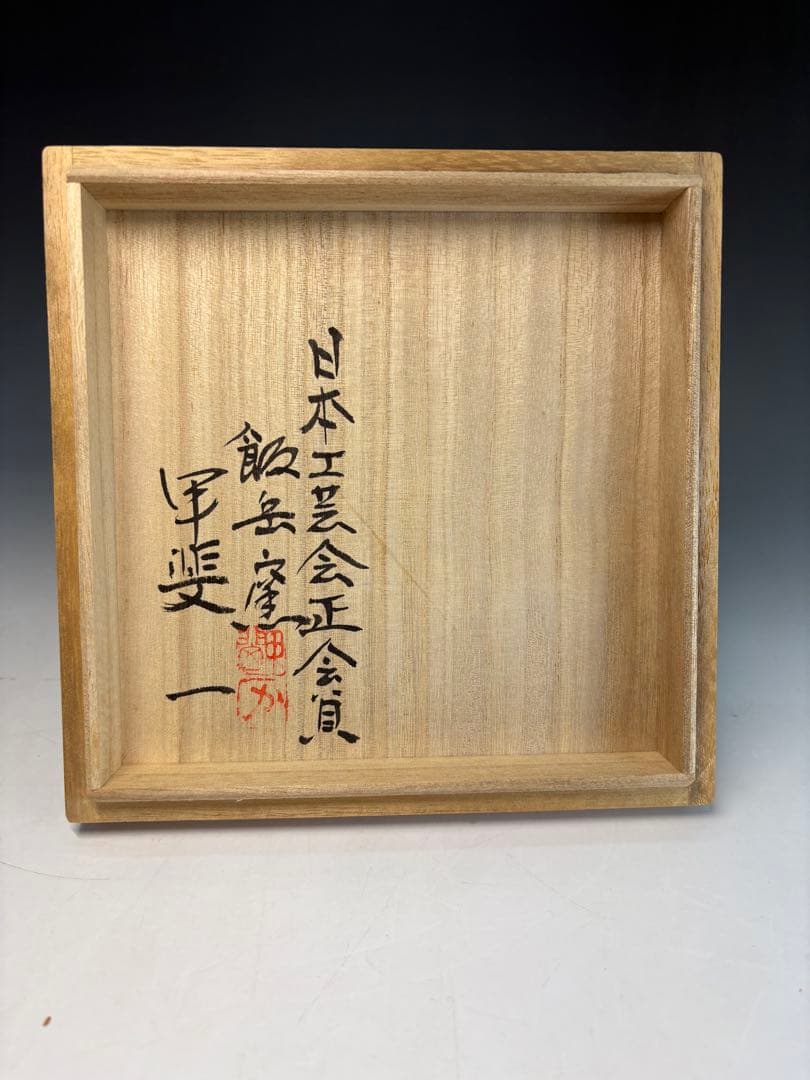 日本工芸会正会員
飯岳窯
甲斐一